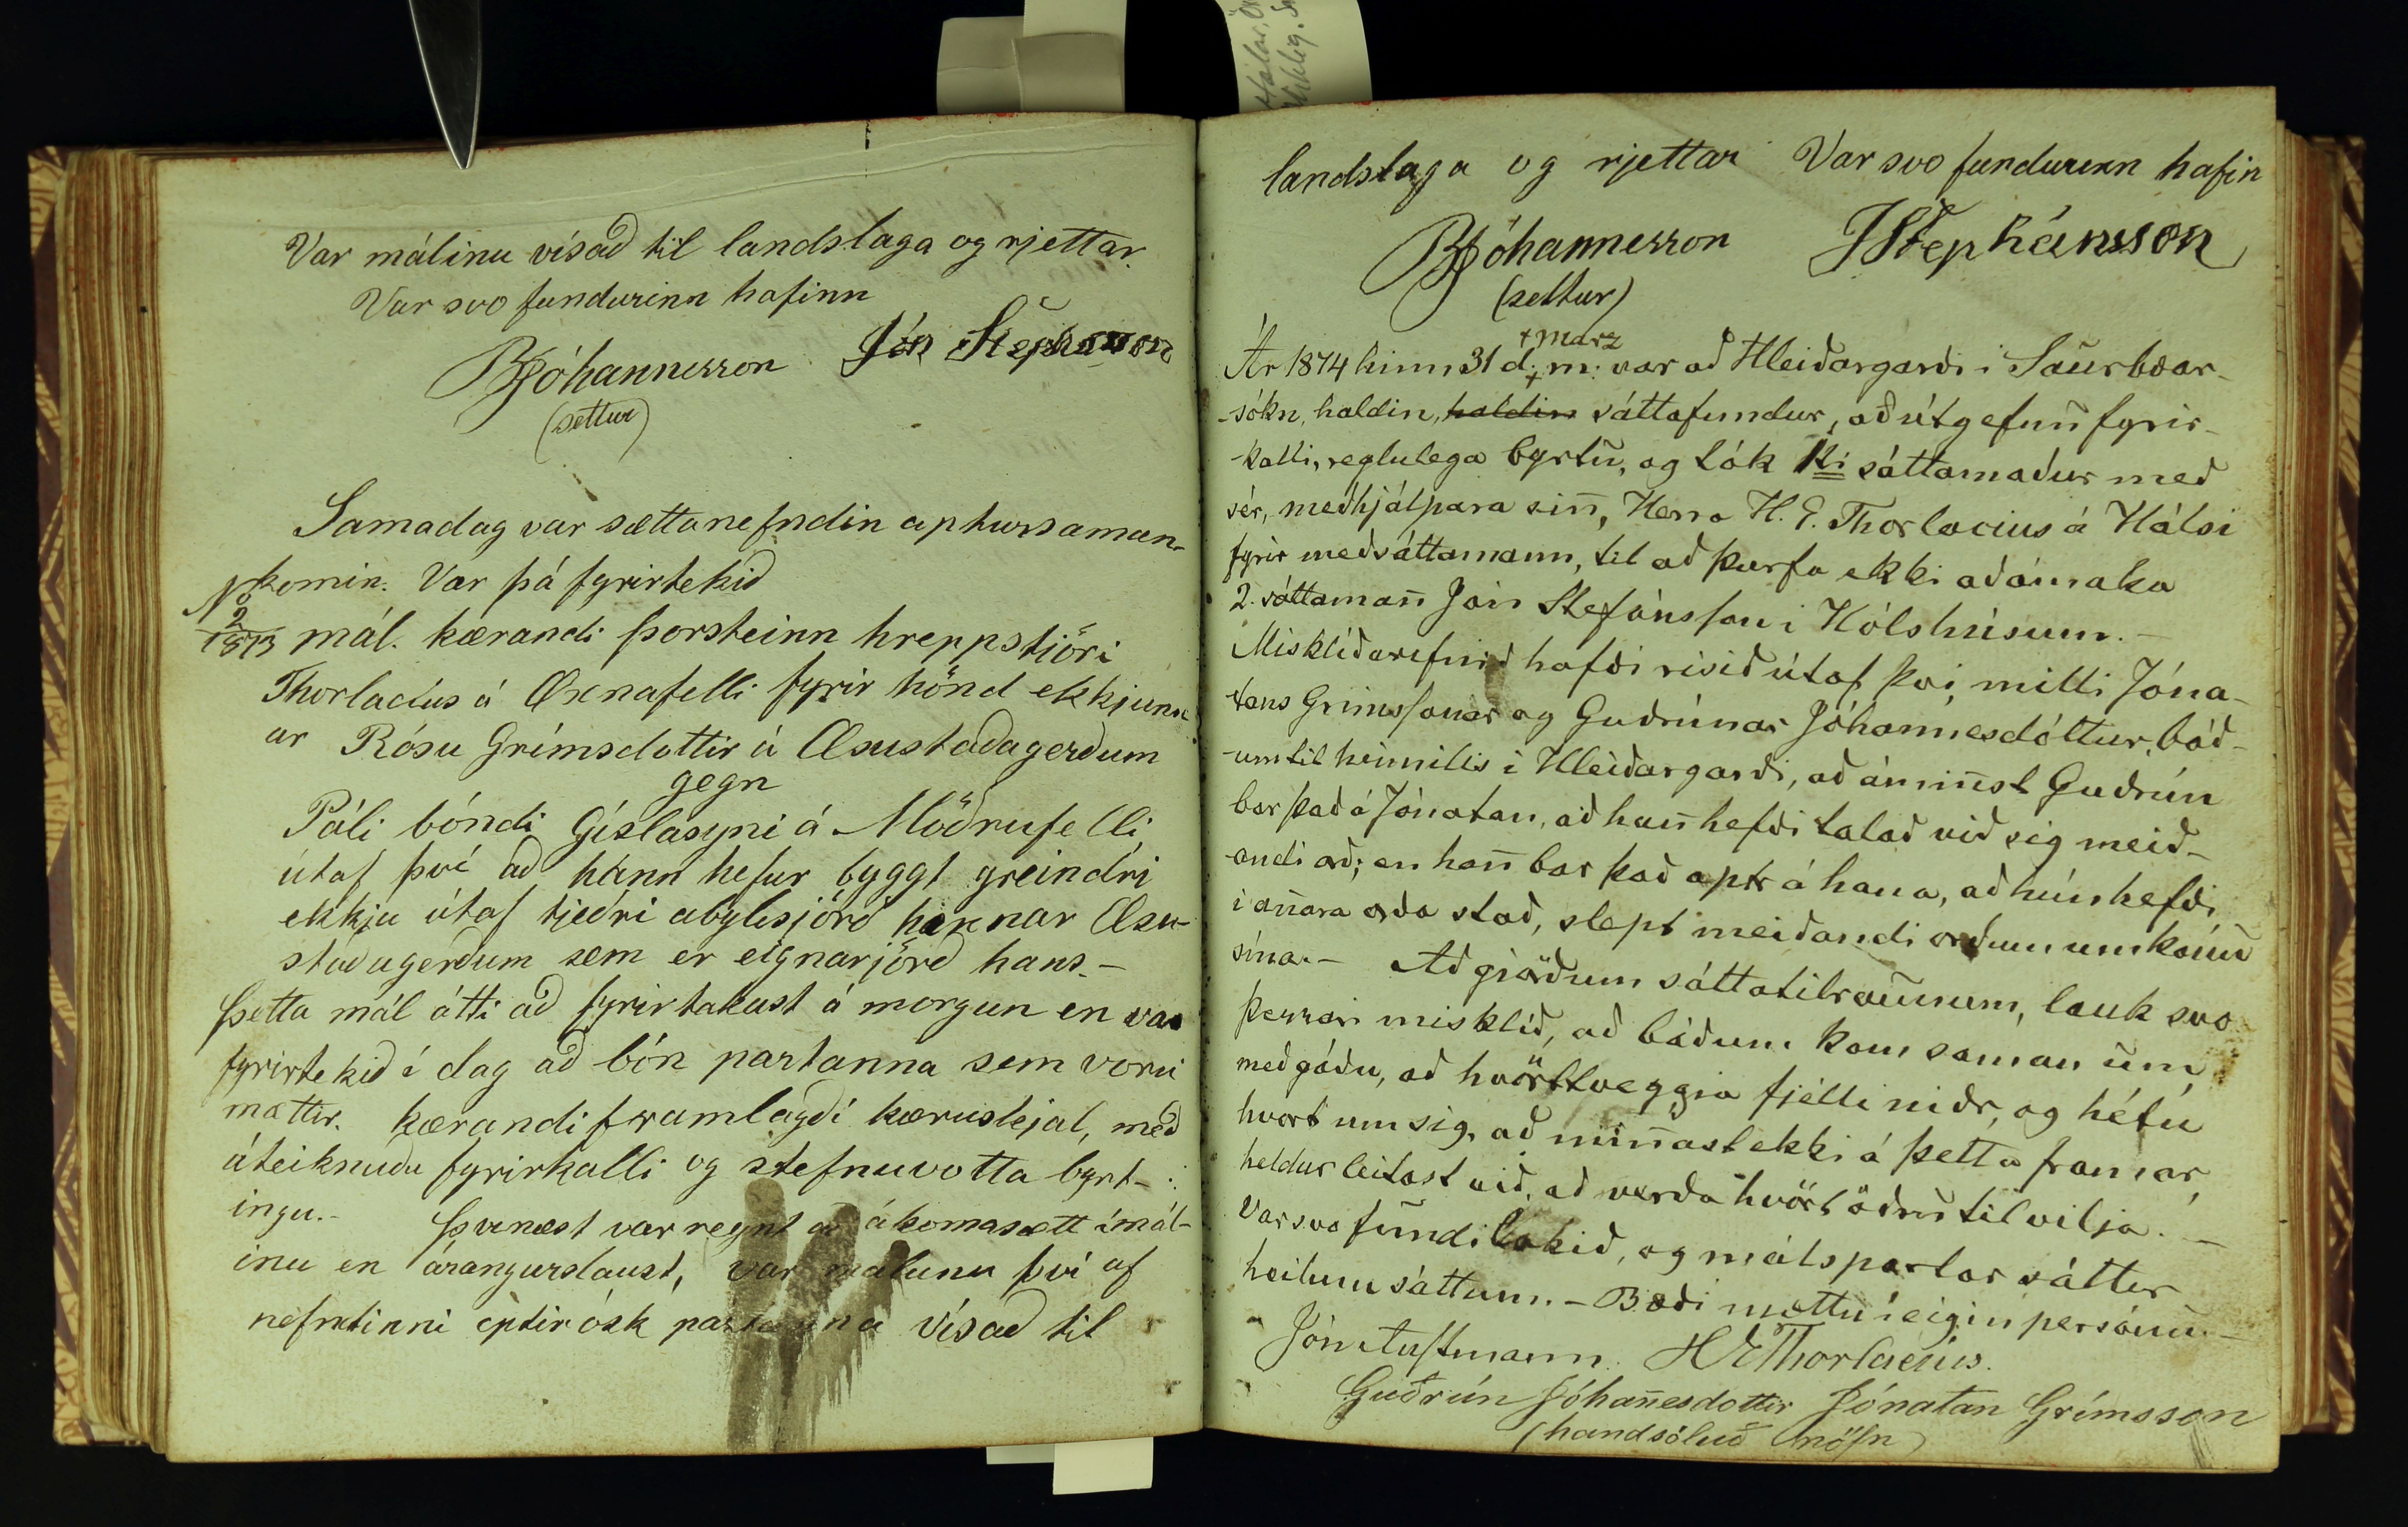 Var málinu vísað til landslaga og rjettar.
Var svo fundurinn hafinn
BJóhannesson Jón Stephansson
(settur)
Samadag var sættanefndin aptursaman-
komin. Var þá fyrirtekið
No 2 1873 mál. kærandi Þorsteinn hreppstjóri
Thorlacius á Öxnafelli fyrir hönd ekkjunn
ar Rósu Grímsdottir á Æsustaðagerðum
gegn
Páli bóndi Gíslasyni á Möðrufelli
útaf því að hann hefur byggt greindri
ekkju útaf tjeðri abylisjörð hennar Æsu-
staðagerðum sem er eignarjörð hans. -
Þetta mál átti að fyrirtakast á morgun en var
fyrirtekið í dag að bón partanna sem voru
mættir. kærandi framlagði kæruskjal, með
áteiknuðu fyrirkalli og stefnuvotta byrt-
ingu. - Þvínæst var reynt að ákomasætt ímál-
inu en árangurslaust, var málunu því af
nefndinni eptir ósk partanna vísað til
landslaga og rjettar Var svo fundurinn hafin
BJóhannesson JStephánsson
(settur)
+ Marz
Ár 1874 hinn 31 d. + m. var að Hleiðargarði í Saurbæar-
-sókn, haldin, haldin sáttafundur, að útgefnu fyrir-
-kalli, reglulega byrtu, og tók 1ti sáttamaður með
sér, meðhjálpara sinn, Herra H. E. Thorlacius á Hálsi
fyrir meðsáttamann, til að þurfa ekki að ómaka
2. sáttamann Jón Stefánsson í Hólshúsum. -
Misklíðarefnið hafði risið útaf því, milli Jóna-
tans Grímssonar og Guðrúnar Jóhannesdóttur, báð-
-um til heimilis í Hleiðargarði, að áminnst Guðrún
bar það á Jónatan, að hann hefði talað við sig meið-
-andi orð; en hann bar það aptr á hana, að hún hefði
í annara orða stað, slept meiðandi orðum um konu
sína. - Að gjörðum sáttatilraunum, lauk svo
þessari misklíð, að báðum kom saman um
með góðu, að hvörttveggja fjélli niðr, og hétu
hvort um sig, að minnast ekki á þetta framar,
heldur leitast við, að verða hvört öðru til vilja. -
Var svo fundi lokið, og málspartar sáttir
heilum sáttum. - Bæði mættu í eigin persónu. -
Jón Austmann. HEThorlacius.
Guðrún Jóhannesdottir Jónatan Grímsson
(handsöluð nöfn)